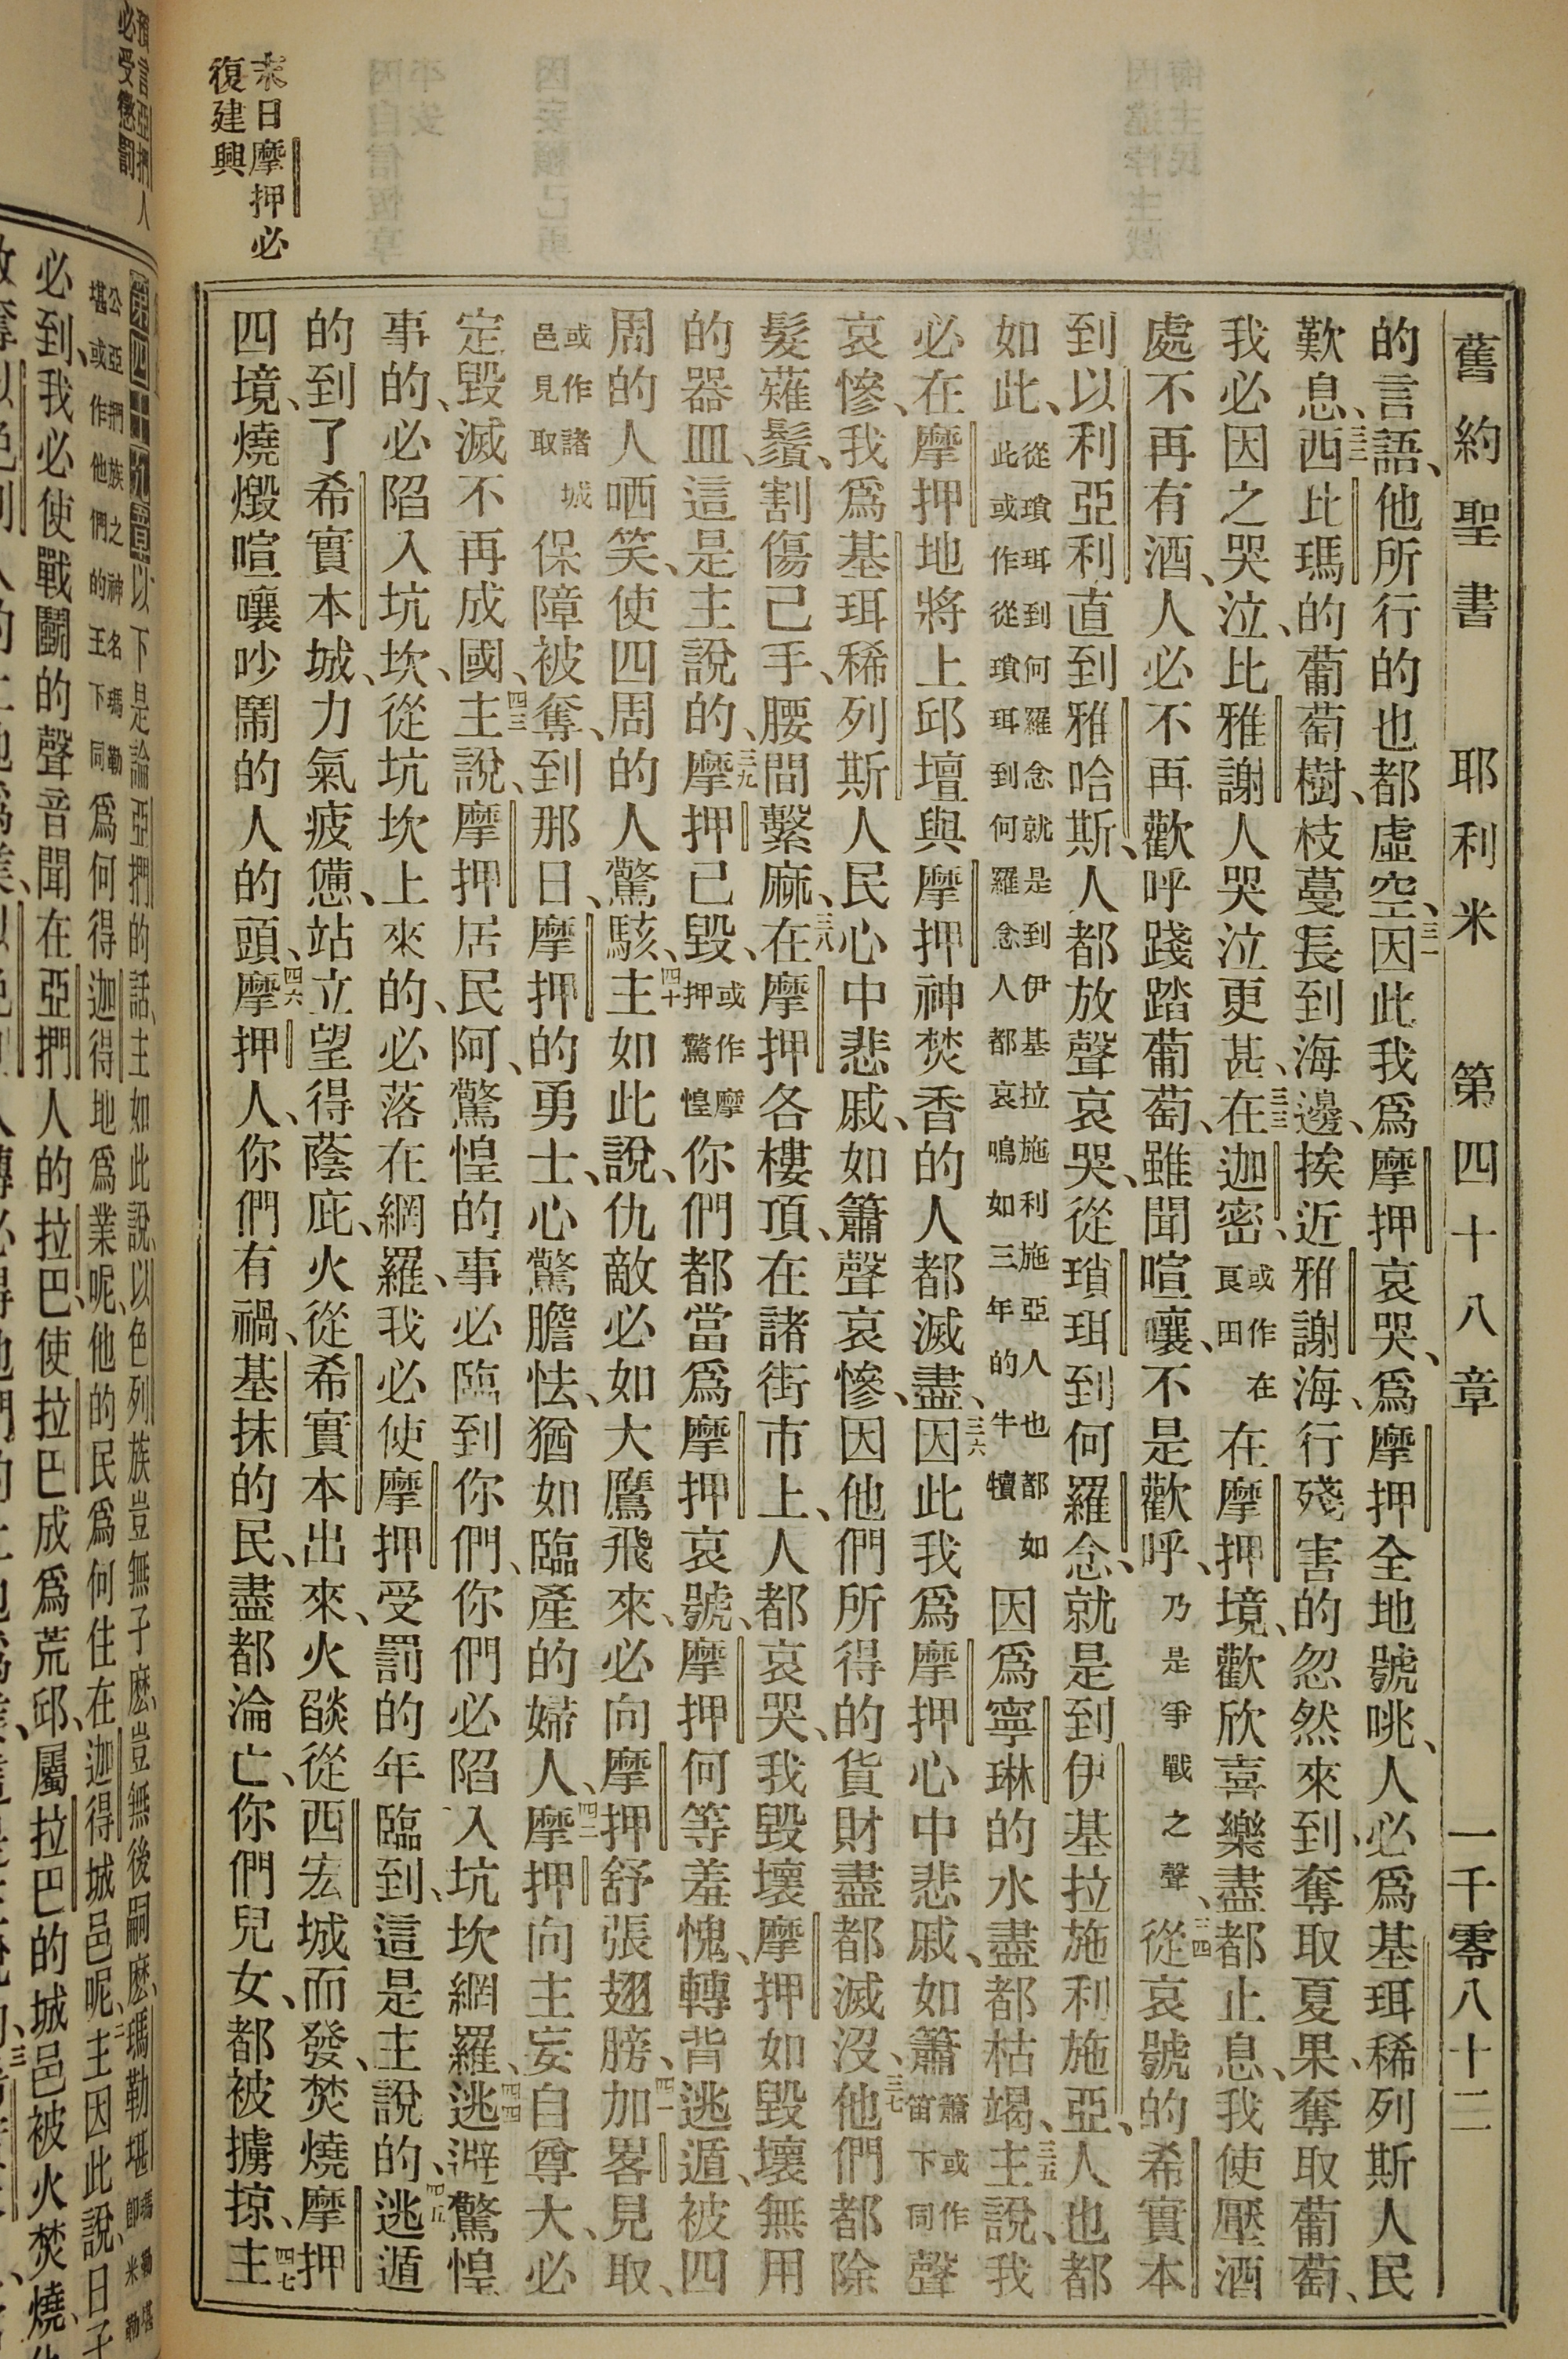 舊約聖書 耶利米 第四十八章 一千零八十二
的言語、他所行的也都虛空、三一因此我爲摩押哀哭、爲摩押全地號咷、人必爲基珥稀列斯人民
歎息、三二西比瑪的葡萄樹、枝蔓長到海邊、挨近雅謝海、行殘害的忽然來到、奪取夏果、奪取葡萄、
我必因之哭泣、比雅謝人哭泣更甚、三三在迦密、或作在良田在摩押境、歡欣喜樂盡都止息、我使壓酒
處不再有酒、人必不再歡呼踐踏葡萄、雖聞喧嚷、不是歡呼、乃是爭戰之聲、三四從哀號的希實本
到以利亞利直到雅哈斯、人都放聲哀哭、從瑣珥到何羅念、就是到伊基拉施利施亞、人也都
如此、從瑣珥到何羅念就是到伊基拉施利施亞人也都如此或作從瑣珥到何羅念人都哀鳴如三年的牛犢因爲寧琳的水盡都枯竭、三五主說、我
必在摩押地將上邱壇與摩押神焚香的人都滅盡、三六因此我爲摩押心中悲戚、如簫簫或作笛下同聲
哀慘、我爲基珥稀列斯人民心中悲戚、如簫聲哀慘、因他們所得的貨財盡都滅沒、三七他們都除
髮薙鬚、割傷己手、腰間繫麻、三八在摩押各樓頂、在諸街市上、人都哀哭、我毀壞摩押如毀壞無用
的器皿、這是主說的、三九摩押己毀、或作摩押驚惶你們都當爲摩押哀號、摩押何等羞愧、轉背逃遁、被四
周的人哂笑、使四周的人驚駭、四十主如此說、仇敵必如大鷹飛來、必向摩押舒張翅膀、四一加畧見取、
或作諸城邑見取保障被奪、到那日、摩押的勇士、心驚膽怯、猶如臨產的婦人、四二摩押向主妄自尊大、必
定毀滅不再成國、四三主說、摩押居民阿、驚惶的事必臨到你們、你們必陷入坑坎網羅、四四逃避驚惶
事的、必陷入坑坎、從坑坎上來的、必落在網羅、我必使摩押受罰的年臨到、這是主說的、四五逃遁
的到了希實本城、力氣疲憊、站立望得蔭庇、火從希實本出來、火燄從西宏城而發、焚燒摩押
四境、燒燬喧嚷吵鬧的人的頭、四六摩押人、你們有禍、基抹的民、盡都淪亡、你們兒女、都被擄掠、四七主
末日摩押必
復建興
預言亞捫人
必受懲罰
第四十九章以下是論亞捫的話、主如此說、以色列族豈無子麽、豈無後嗣麽、瑪勒堪瑪勒堪卽米勒
公亞捫族之神名瑪勒堪或作他們的王下同爲何得迦得地爲業呢、他的民爲何住在迦得城邑呢、二主因此說、日子
必到、我必使戰鬭的聲音聞在亞捫人的拉巴、使拉巴成爲荒邱、屬拉巴的城邑被火焚燒、